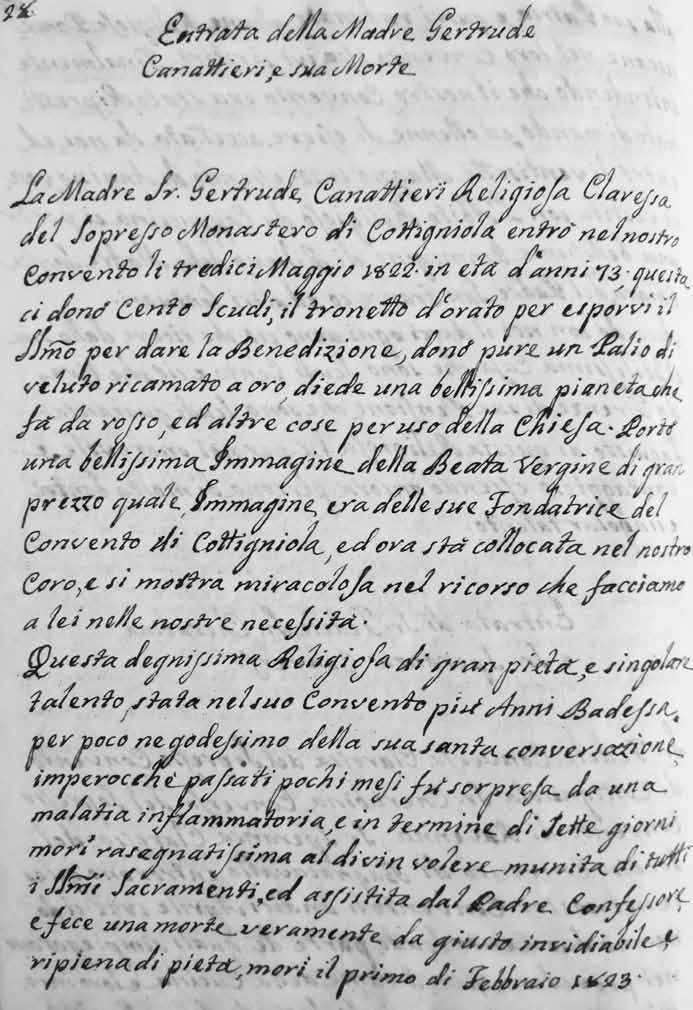 28.
Entrata della Madre Gertrude
Canattieri, e sua Morte
La Madre Sr. Gertrude Canattieri Religiosa Claressa
del Sopresso Monastero di Cottigniola entrò nel nostro
Convento li tredici Maggio 1822. in età d'anni 73. questa
ci donò Cento Scudi, il tronetto d'orato per esporvi il
SSmo per dare la Benedizione, donò pure un Palio di
veluto ricamato a oro, diede una bellissima pianeta che
fa da rosso, ed altre cose per uso della Chiesa. Portò
una bellissima Immagine della Beata Vergine di gran
prezzo quale Immagine era delle sue Fondatrice del
Convento di Cottigniola, ed ora stà collocata nel nostro
Coro, e si mostra miracolosa nel ricorso che facciamo
a lei nelle nostre necessità.
Questa degnissima Religiosa di gran pietà, e singolare
talento, stata nel suo Convento più Anni Badessa,
per poco ne godessimo della sua santa conversazione,
imperocchè passati pochi mesi fù sorpresa da una
malatia inflammatoria, e in termine di Sette giorni
morì rasegnatissima al divin volere munita di tutti
i SSmi Sacramenti, ed assistita dal Padre Confessore,
e fece una morte veramente da giusto invidiabile, e
ripiena di pietà, morì il primo di Febbraio 1823.